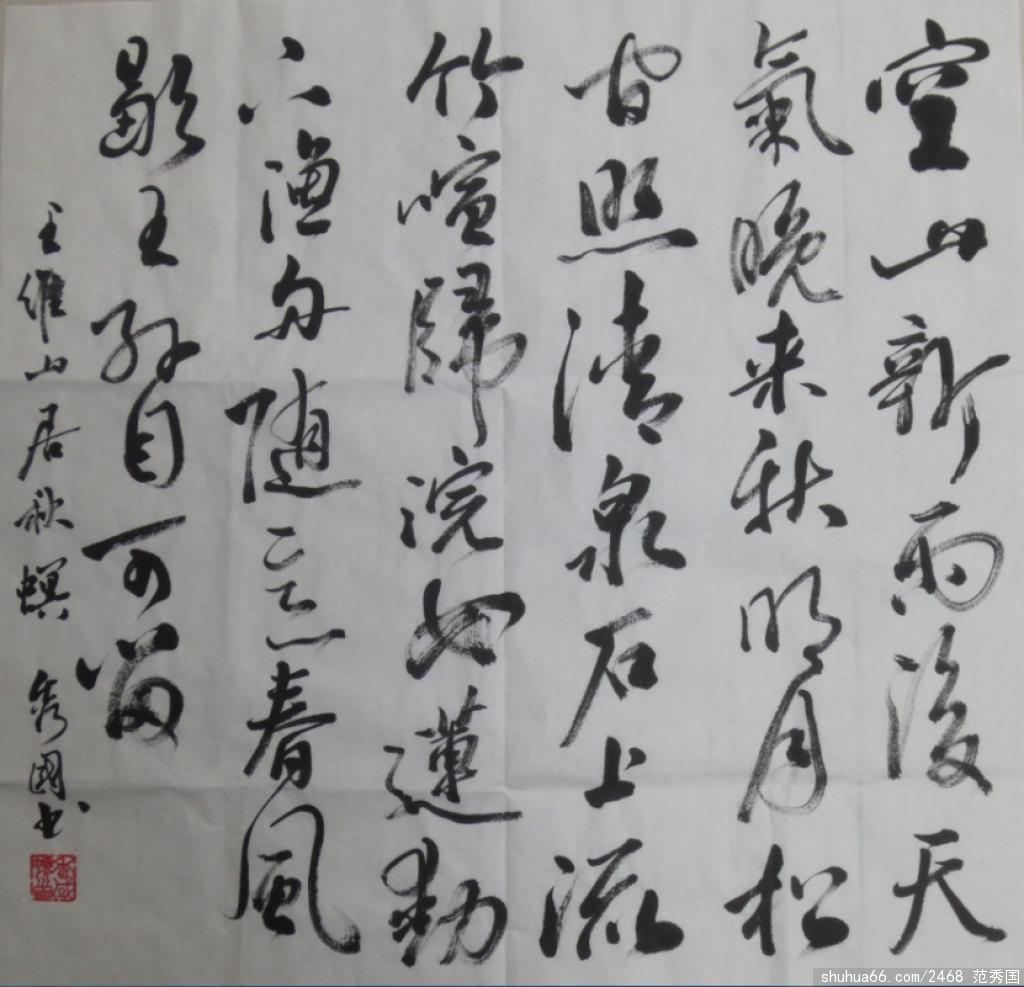 空山新雨後天
氣晚来秋明月松
間照清泉石上流
竹喧歸浣女蓮動
下漁舟随意春風
歇王孫自可留
王維山居秋暝 秀國书
shuhua66.com/2468 范秀国